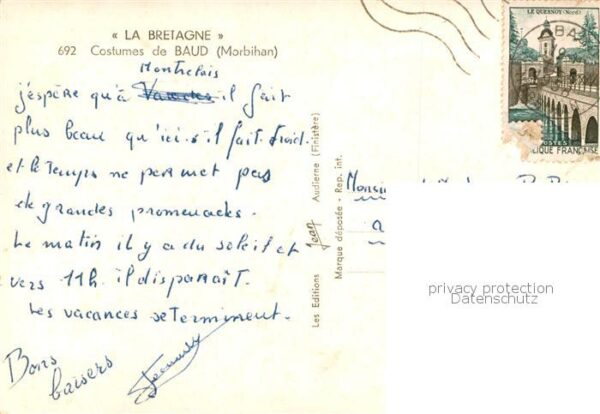 « LA BRETAGNE »
692 Costumes de BAUD (Morbihan)
Montrelais
j'espère qu'à il fait
plus beau qu'ici s'il fait froid
et le temps ne permet pas
de grandes promenades.
Le matin il y a du soleil et
vers 11h. il disparaît.
Les vacances se terminent.
Bons
baisers
Les Editions Jean Audierne (Finistère)
Marque déposée - Rep. int.
LE QUESNOY (Nord)
POSTES
BLIQUE FRANÇAISE
Monsieu
privacy protection
Datenschutz